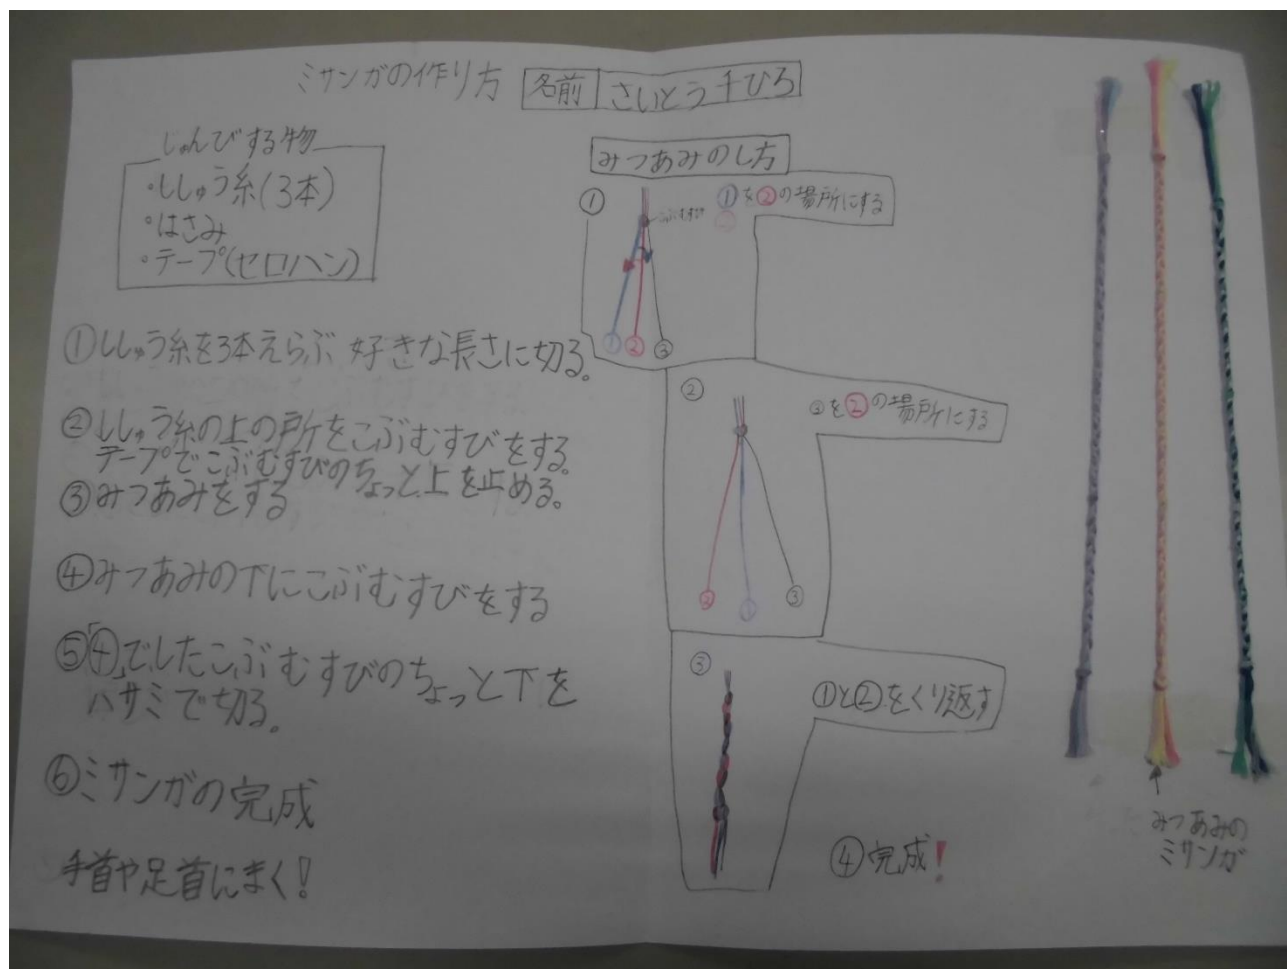 ミサンガの作り方
名前 さいとう千ひろ
じゅんびする物
・ししゅう糸(3本)
・はさみ
・テープ(セロハン)
①ししゅう糸を3本えらぶ 好きな長さに切る。
②ししゅう糸の上の所をこぶむすびをする
テープでこぶむすびのちょっと上を止める。
③みつあみをする
④みつあみの下にこぶむすびをする
⑤「④」でしたこぶむすびのちょっと下を
ハサミで切る。
⑥ミサンガの完成
手首や足首にまく!
みつあみのし方
①
こぶむすび
①を②の場所にする
① ② ③
②
③を②の場所にする
② ① ③
③
①と②をくり返す
④完成!
みつあみの
ミサンガ